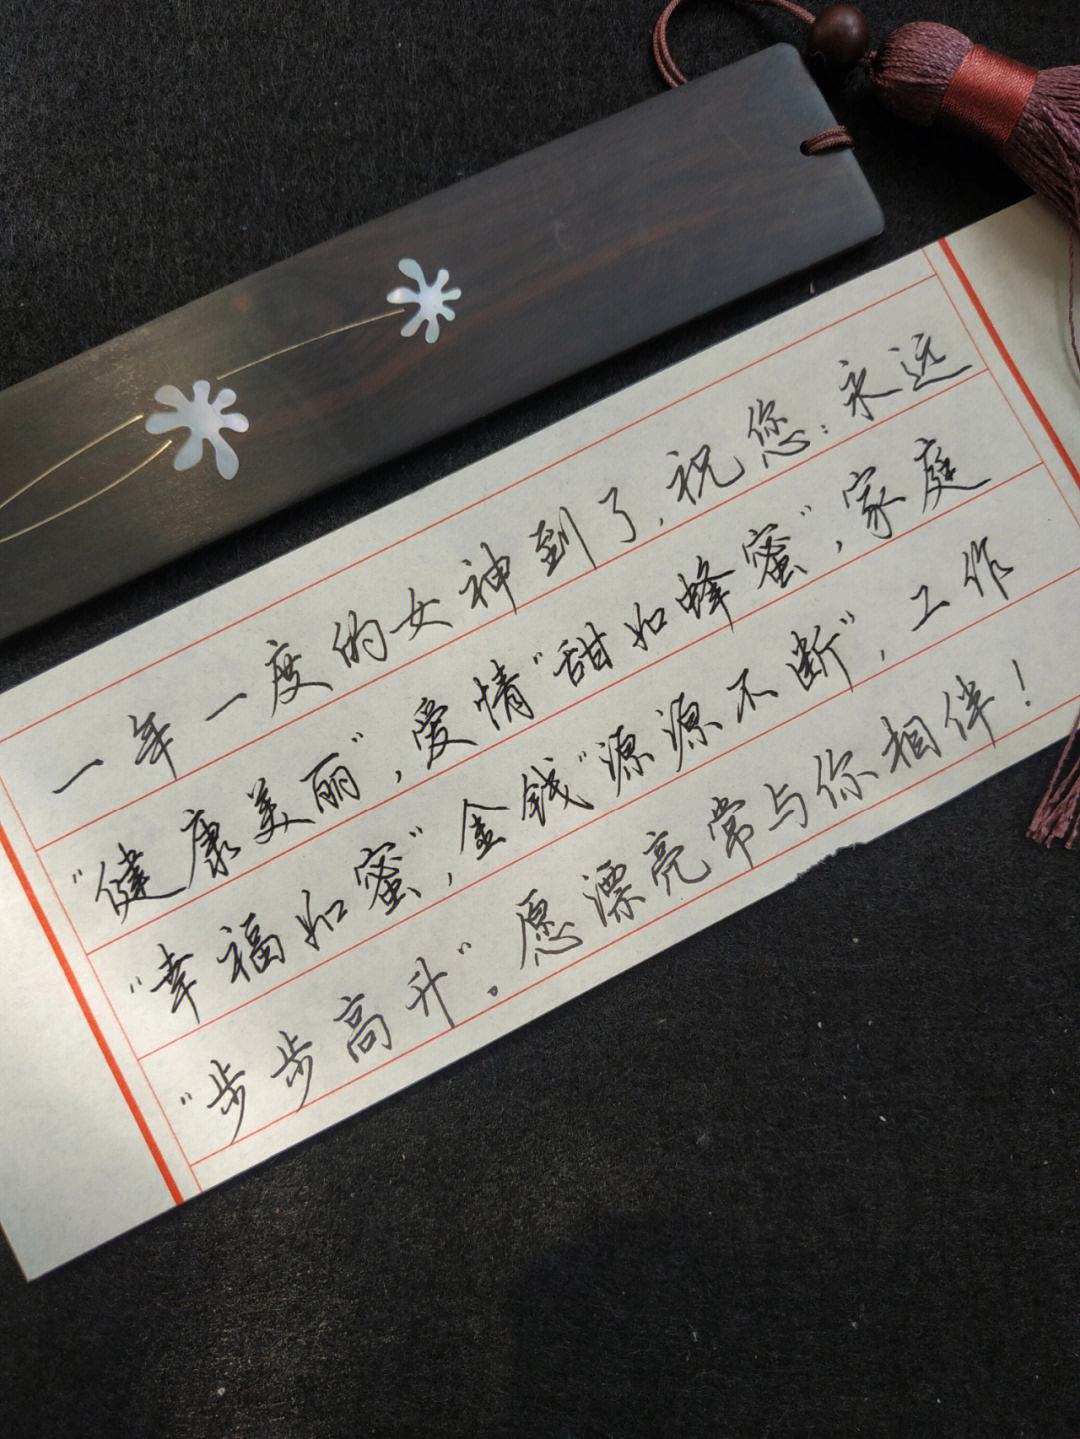 一年一度的女神到了,祝您:永远
"健康美丽",爱情"甜如蜂蜜",家庭
"幸福如蜜",金钱"源源不断",工作
"步步高升"。愿漂亮常与你相伴!